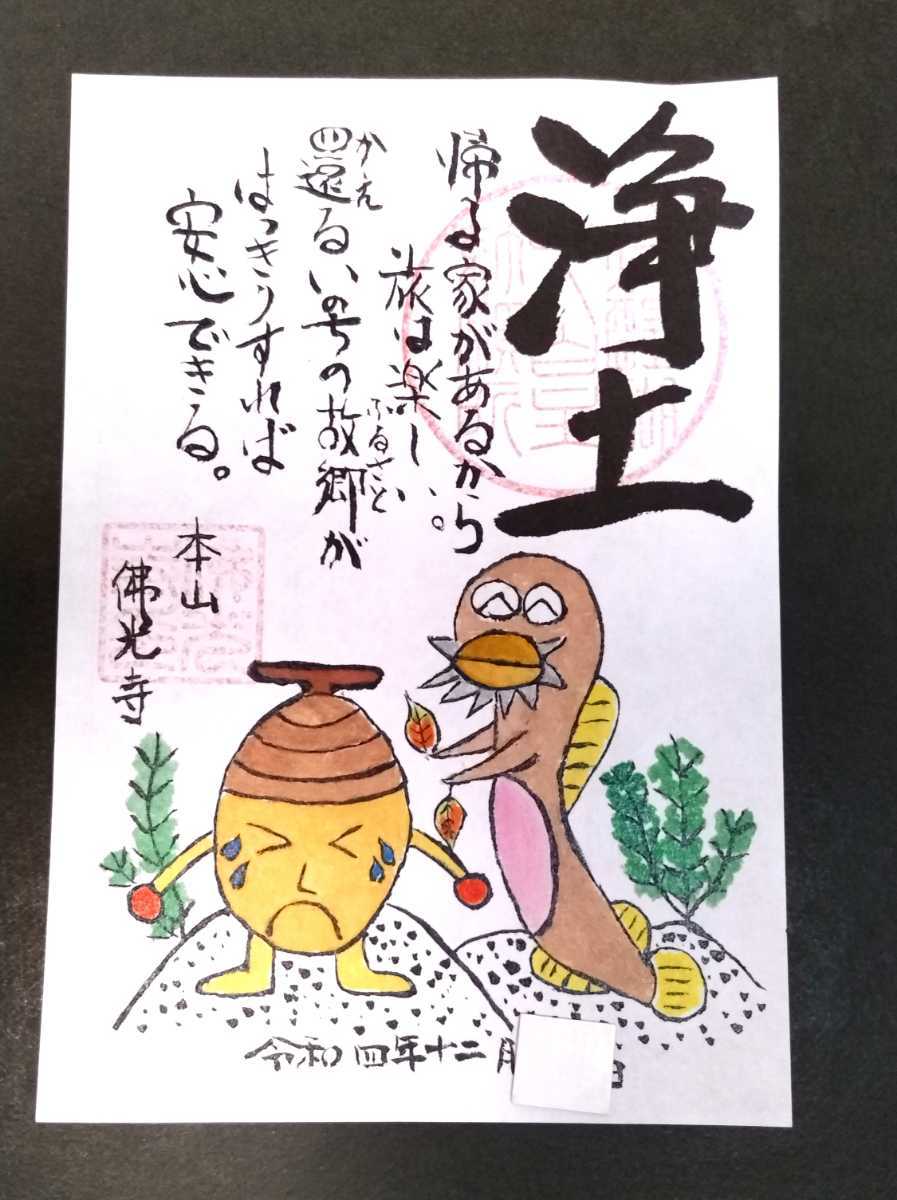 浄土
帰る家があるから
旅は楽しい。
還るいのちの故郷が
かえ
ふるさと
はっきりすれば
安心できる。
本山
佛光寺
令和四年十二月
日